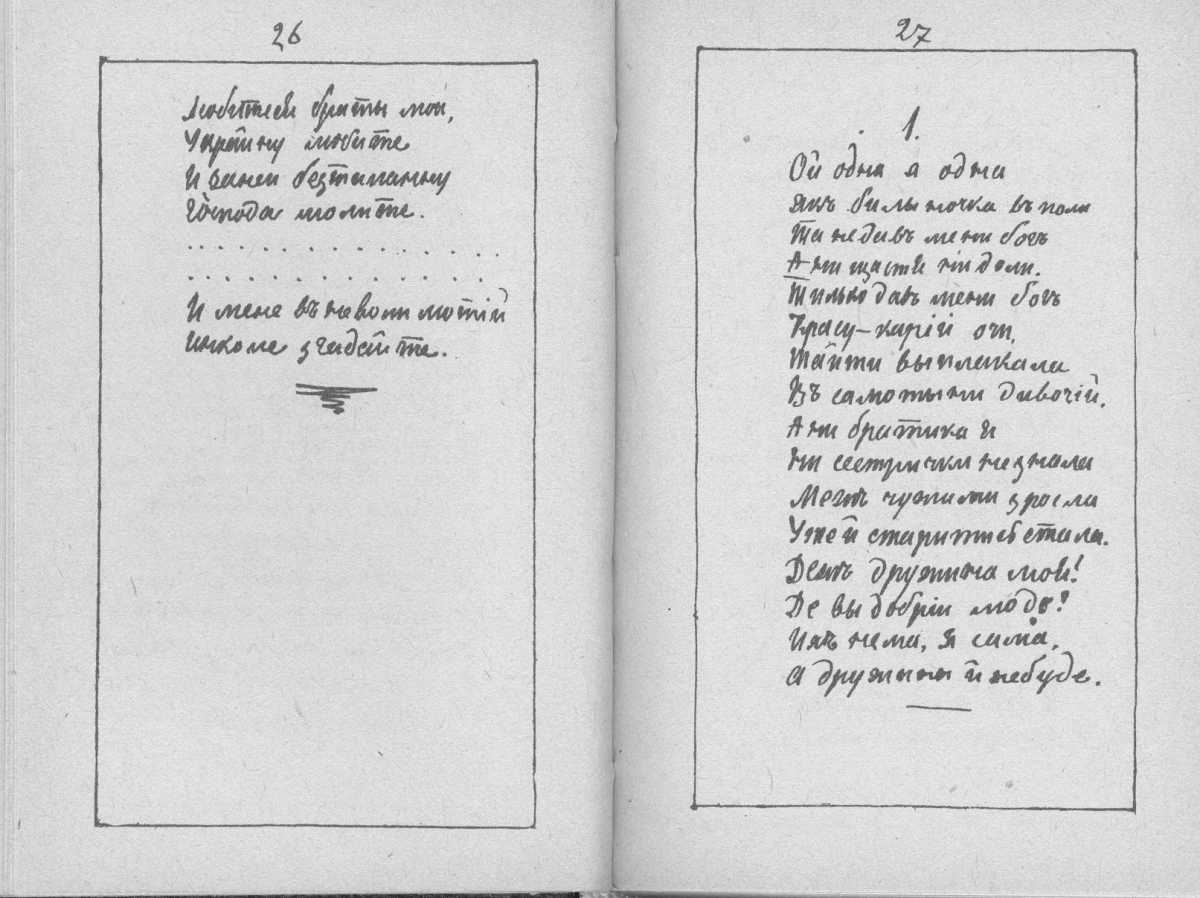 26
Любитеся браты мои,
Украину любите
И за неи безталанну
Господа молите.
. . . . . . . . . . . . . .
. . . . . . . . . . . . . .
И мене въ неволи лютій
инколе згадайте.
27
1.
Ой одна я одна
якъ былыночка въ поли
Та не давъ мени богъ
Ани щастя ни доли.
Тилько давъ мени богъ
Красу–карійи очи,
Та й ти выплакала
Въ самотыни дивочій.
Ани братика я
ни сестрички не знала
Межъ чужими зросла
Уже й старитися стала.
Дежъ дружина моя!
Де вы добріи люде?
Ихъ нема, я сама,
а дружины й не буде.